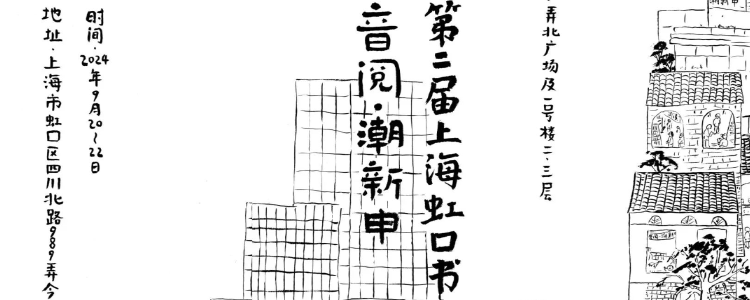 弄北广场及一号楼二·三层
第二届上海虹口书
音阅·潮新申
时间·2024年9月20~22日
地址·上海市虹口区四川北路989弄今